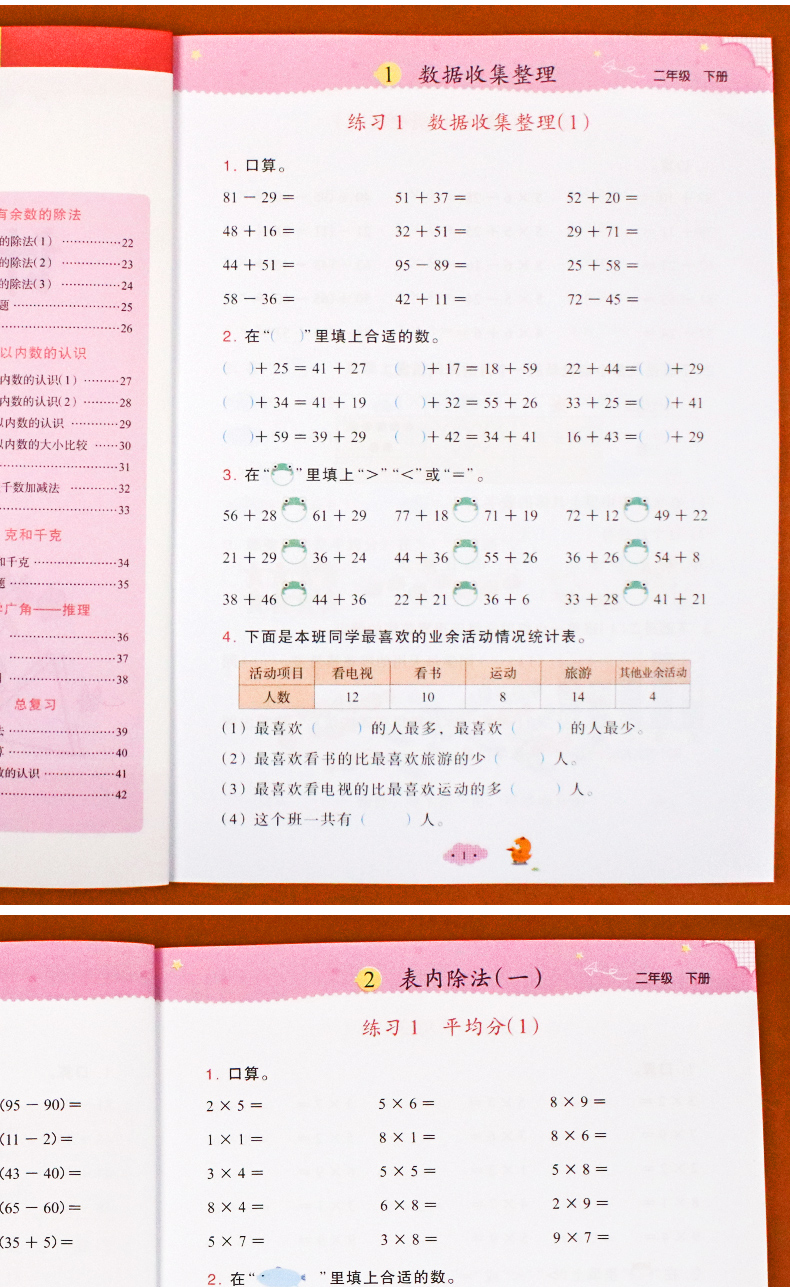 有余数的除法
的除法(1) ……………22
的除法(2) ……………23
的除法(3) ……………24
题 ……………………25
……………………26
以内数的认识
内数的认识(1) ………27
内数的认识(2) ………28
以内数的认识 …………29
以内数的大小比较 ……30
……………………31
千数加减法 …………32
……………………33
克和千克
和千克 ………………34
题 ……………………35
学广角——推理
……………………36
……………………37
……………………38
总复习
法 ……………………39
算 ……………………40
数的认识 ……………41
……………………42
1 数据收集整理 二年级 下册
练习1 数据收集整理(1)
1. 口算。
81 − 29 = 51 + 37 = 52 + 20 =
48 + 16 = 32 + 51 = 29 + 71 =
44 + 51 = 95 − 89 = 25 + 58 =
58 − 36 = 42 + 11 = 72 − 45 =
2. 在“( )”里填上合适的数。
( )+ 25 = 41 + 27 ( )+ 17 = 18 + 59 22 + 44 =( )+ 29
( )+ 34 = 41 + 19 ( )+ 32 = 55 + 26 33 + 25 =( )+ 41
( )+ 59 = 39 + 29 ( )+ 42 = 34 + 41 16 + 43 =( )+ 29
3. 在“ ”里填上“>”“<”或“=”。
56 + 28 61 + 29 77 + 18 71 + 19 72 + 12 49 + 22
21 + 29 36 + 24 44 + 36 55 + 26 36 + 26 54 + 8
38 + 46 44 + 36 22 + 21 36 + 6 33 + 28 41 + 21
4. 下面是本班同学最喜欢的业余活动情况统计表。
活动项目 看电视 看书 运动 旅游 其他业余活动
人数 12 10 8 14 4
(1) 最喜欢( )的人最多，最喜欢( )的人最少。
(2) 最喜欢看书的比最喜欢旅游的少( )人。
(3) 最喜欢看电视的比最喜欢运动的多( )人。
(4) 这个班一共有( )人。
· 1 ·
(95 − 90)=
(11 − 2)=
(43 − 40)=
(65 − 60)=
(35 + 5)=
2 表内除法(一) 二年级 下册
练习1 平均分(1)
1. 口算。
2 × 5 = 5 × 6 = 8 × 9 =
1 × 1 = 8 × 1 = 8 × 6 =
3 × 4 = 5 × 5 = 5 × 8 =
8 × 4 = 6 × 8 = 2 × 9 =
5 × 7 = 3 × 8 = 9 × 7 =
2. 在“ ”里填上合适的数。